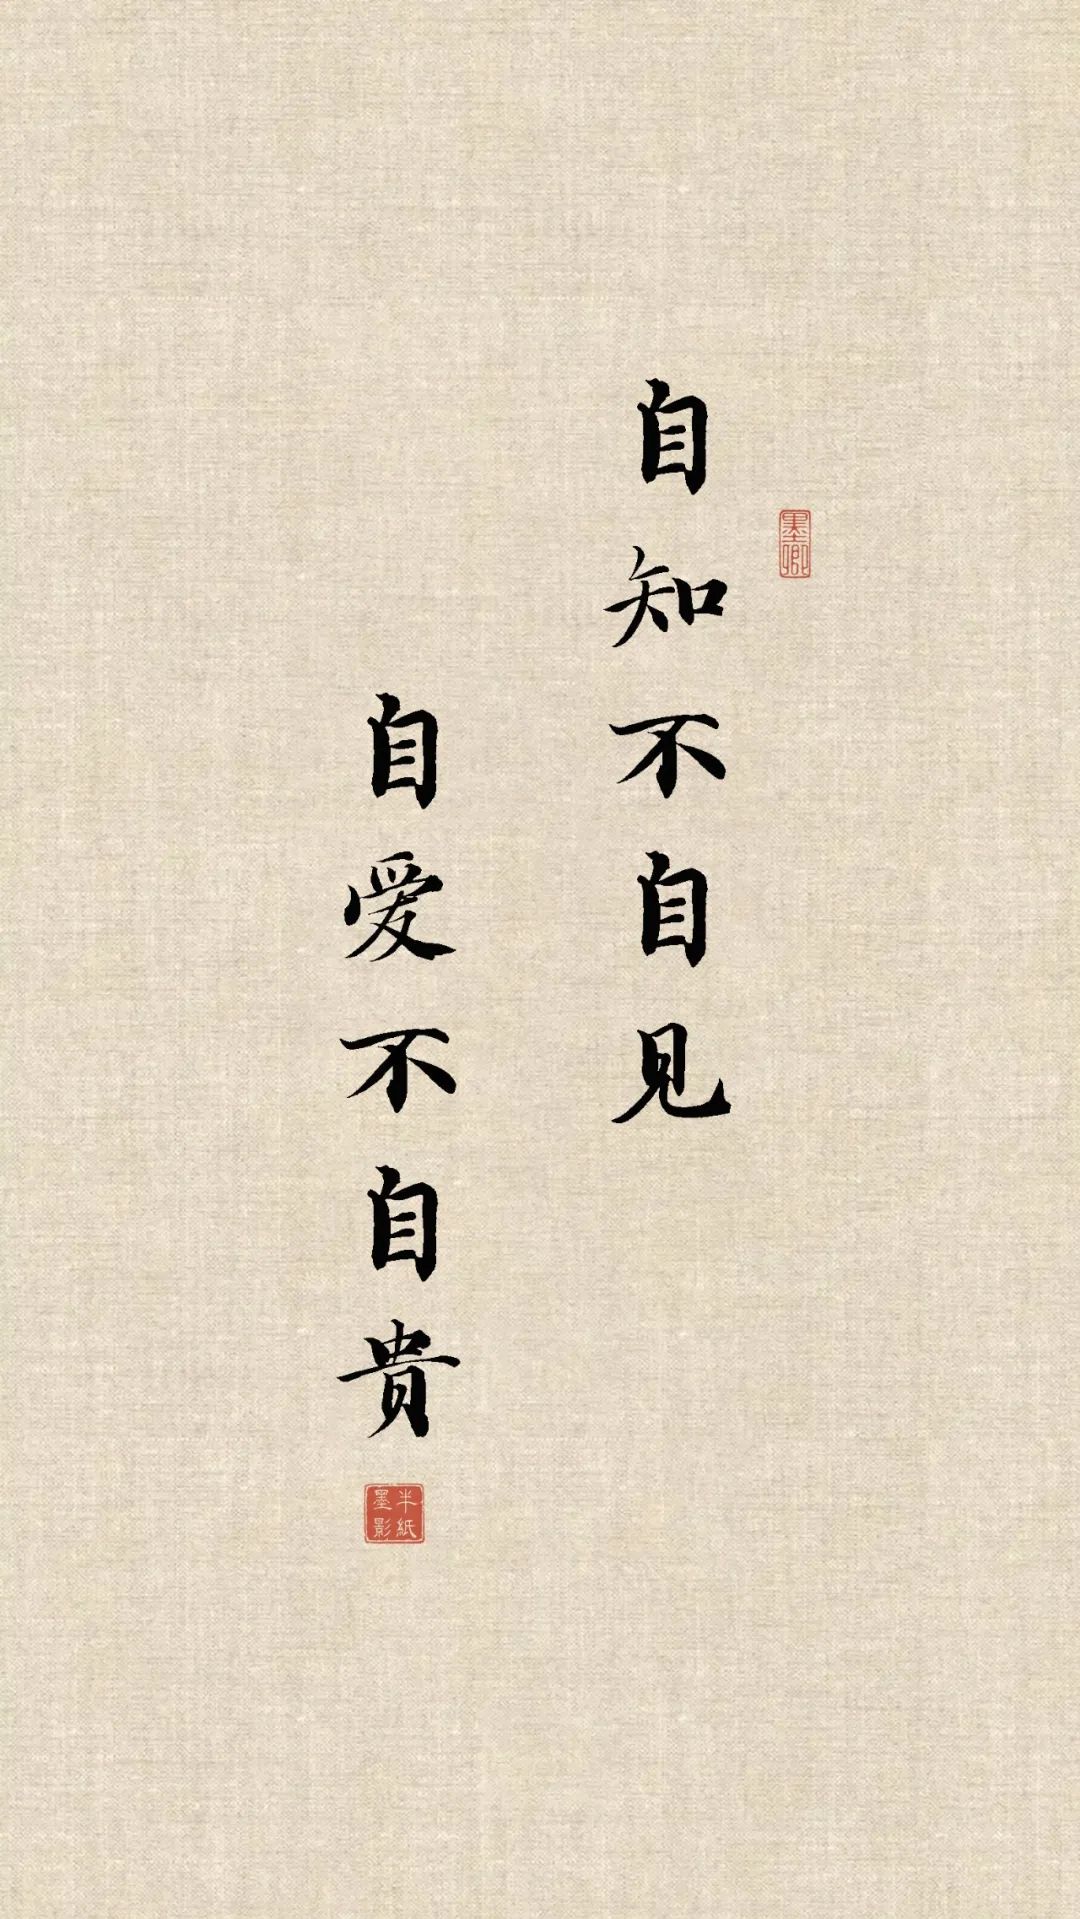 自知不自见
自爱不自貴
墨卿
半紙
墨影